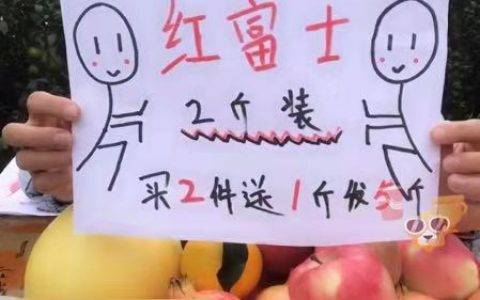 红富士
2斤装
买2件送1斤发5斤